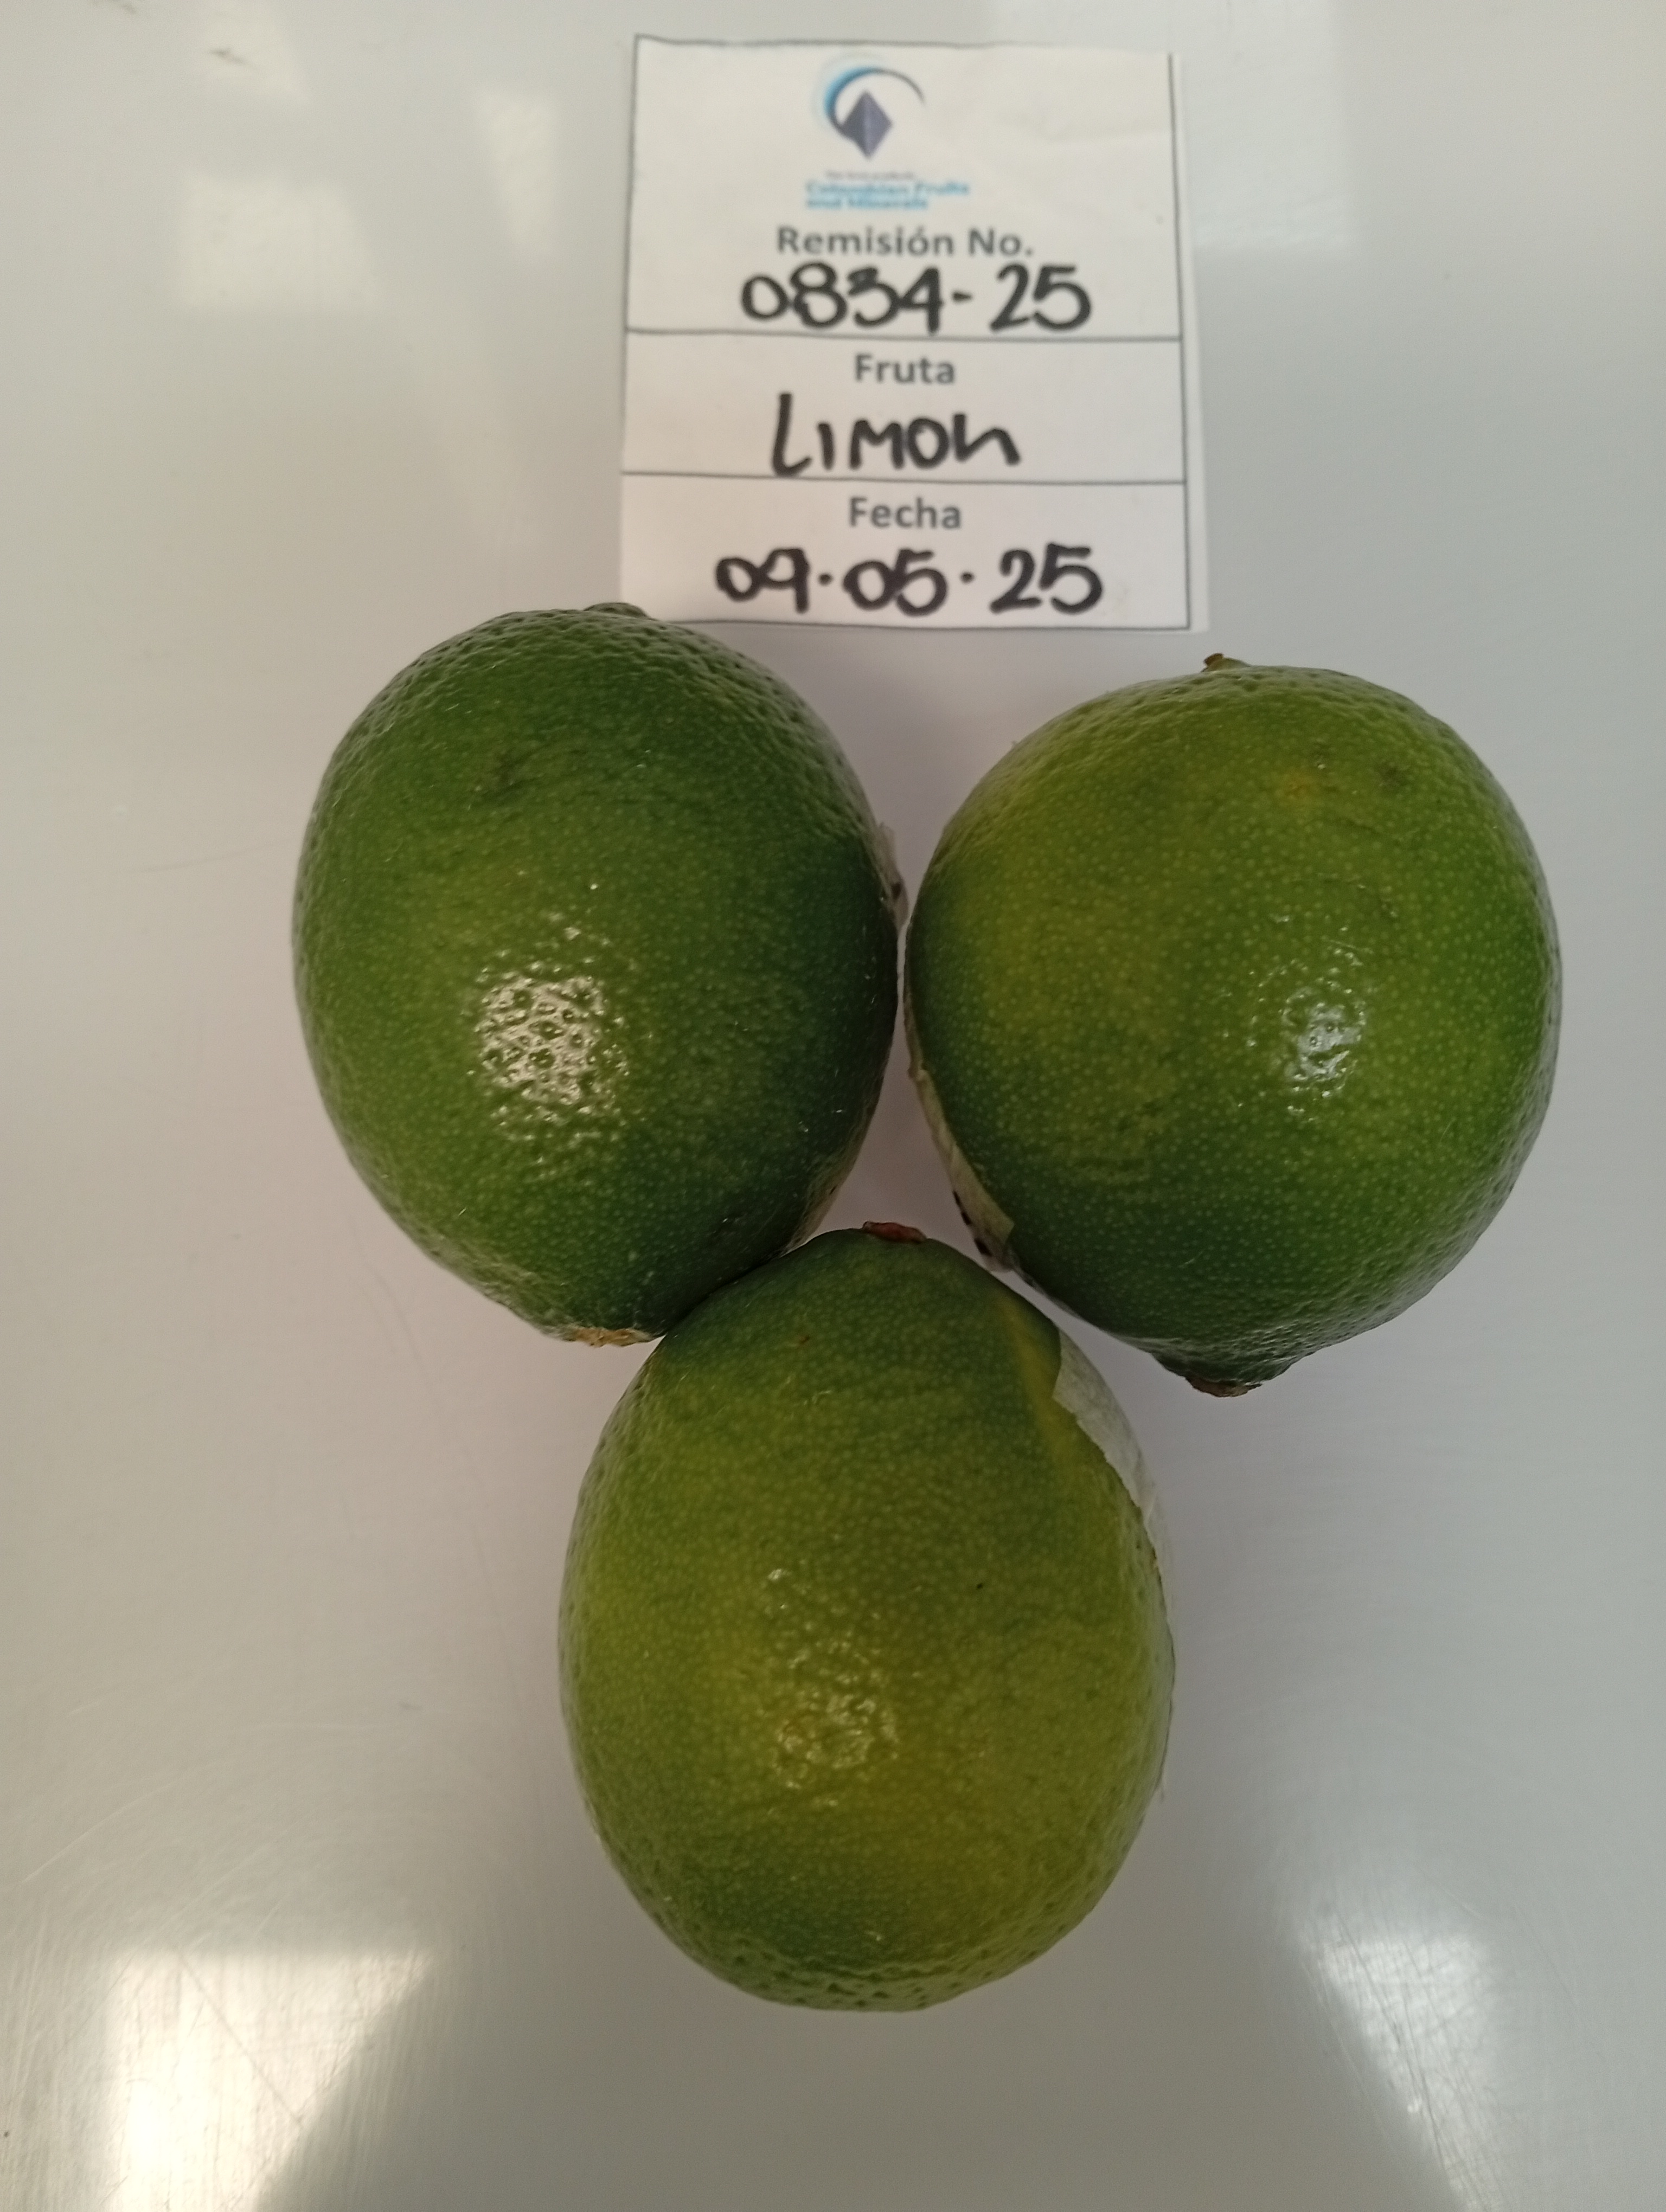 Colombian Fruits
and Minerals
Remisión No.
0834-25
Fruta
LIMON
Fecha
09.05.25